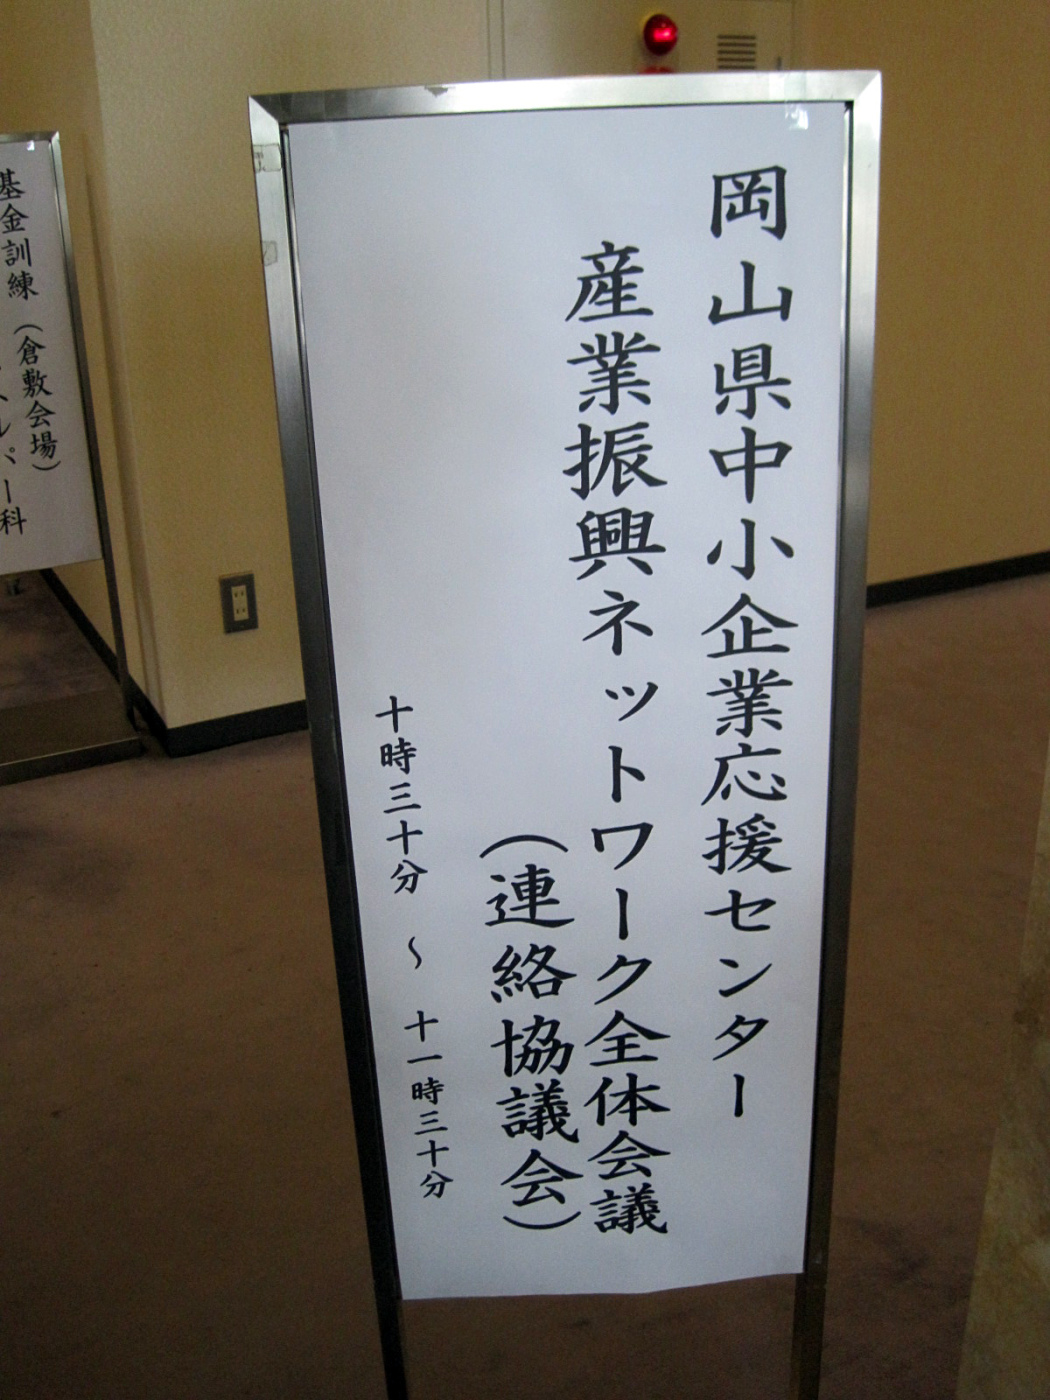 岡山県中小企業応援センター
産業振興ネットワーク全体会議
（連絡協議会）
十時三十分 〜 十一時三十分
（倉敷会場）
基金訓練
ルパー科